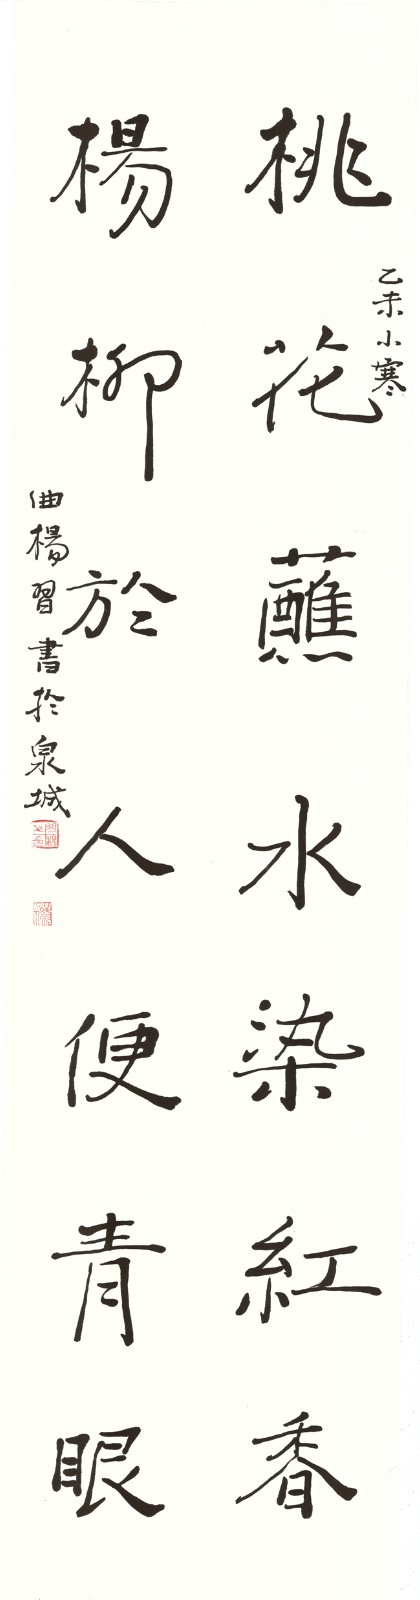 乙未小寒
桃花蘸水染紅香
楊柳於人便青眼
曲楊習書於泉城